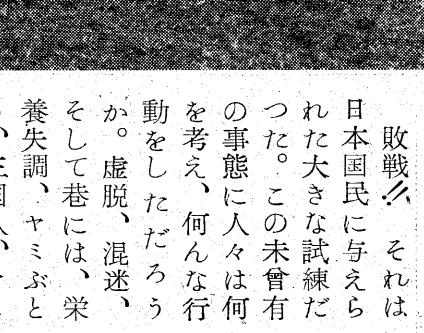 敗戦!! それは
日本国民に与えら
れた大きな試練だ
つた。この未曾有
の事態に人々は何
を考え、何んな行
動をしただろう
か。虚脱、混迷、
そして巷には、栄
養失調、ヤミぶと